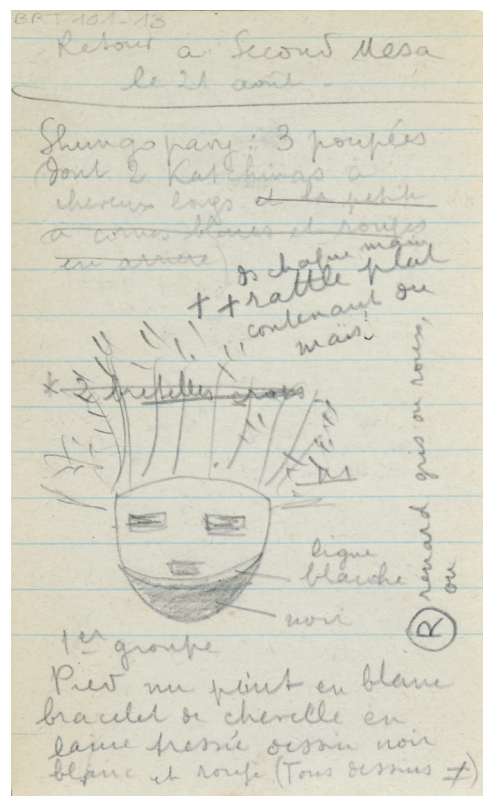 BRT 101-13
Retour à Second Mesa
le 21 août.
Shungopavy : 3 poupées
(dont 2 Katchinas à
cheveux longs et la petite
à cornes bleues et rouges
en arrière)
ds chaque main
+ + rattle plat
contenant du
maïs.
* 2 bretelles
ligne
blanche
noir
1er groupe
Pied nu peint en blanc
bracelet de cheville en
laine tressée dessin noir
blanc et rouge (Tous dessins ≠)
(R) renard gris ou roux,
ou